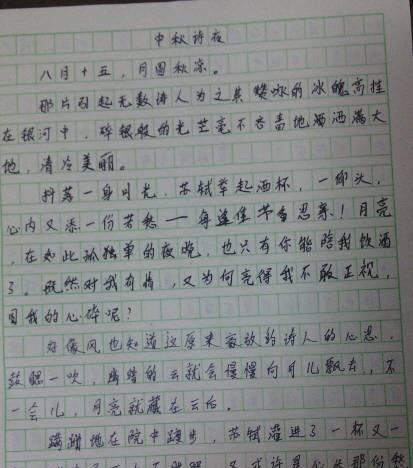 中秋诗夜
八月十五，月圆秋凉。
那片引起无数诗人为之共赞咏的冰魄高挂
在银河中，碎银般的光芒毫不吝啬地洒洒满大
地，清冷美丽。
抖落一身月光，苏轼举起酒杯，一仰头，
心内又添一份苦愁——每逢佳节倍思亲！月亮
，在如此孤独单的夜晚，也只有你能陪我饮酒
了。既然对我有情，又为何亮得我不敢正视，
圆我的心碎呢？
好像风也知道这原来豪放的诗人的心思，
鼓腮一吹，的云就会慢慢向月儿飘去，不
一会儿，月亮就藏在云后。
蹒跚地在院中踱步，苏轼灌进了一杯又一